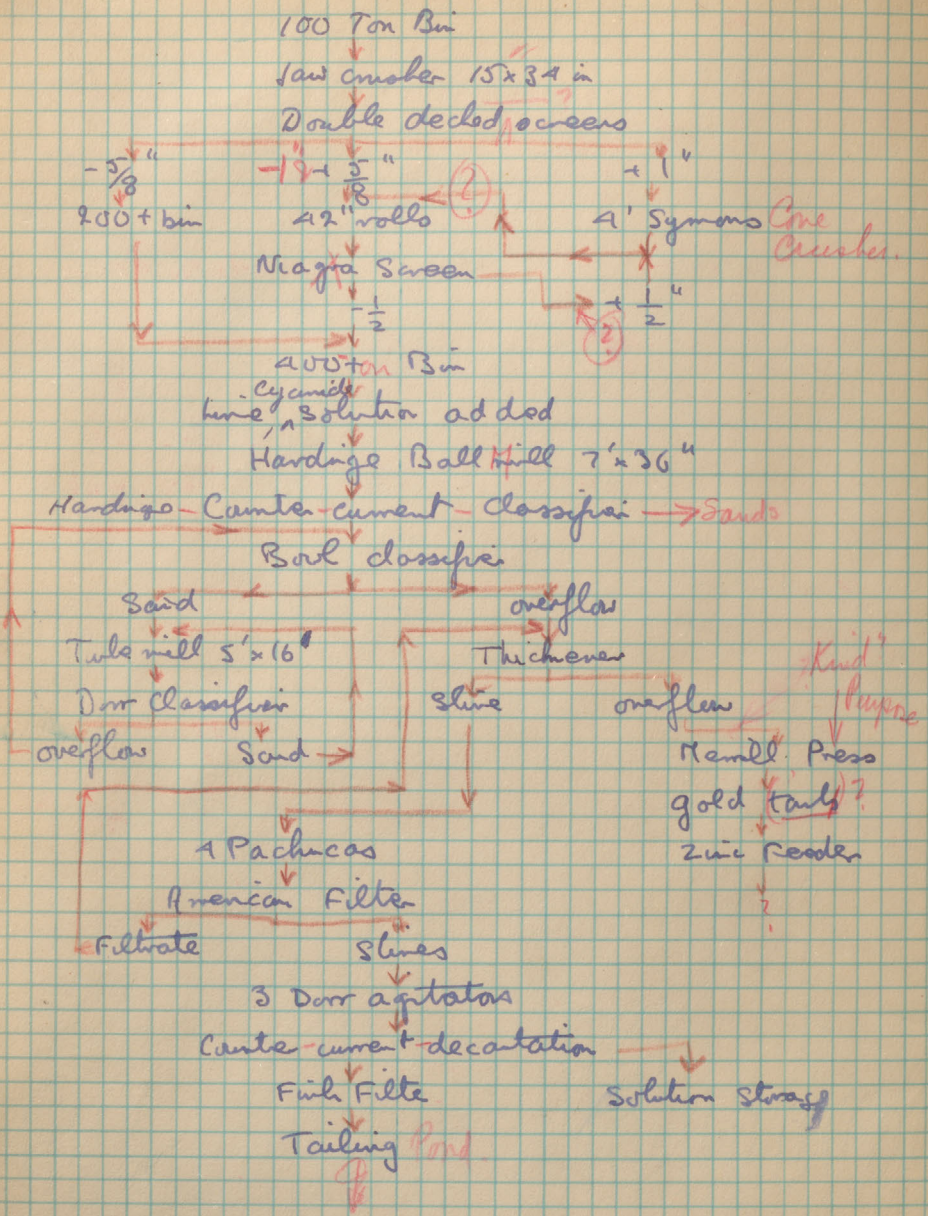 100 Ton Bin
Jaw crusher 15 x 34 in
?
Double decked screens
- 5/8" -1 8 + 5/8" + 1"
?
200 t bin 42" rolls 4' Symons Cone
Crusher.
Niagra Screen
- 1/2 + 1/2"
?
400 ton Bin
Cyanide
Lime ^ Solution added
Hardinge Ball Mill 7' x 36"
Hardinge - Counter - current - Classifier → Sands
Bowl classifier
Sand overflow
Tube mill 5' x 16' Thickener "Kind"
Dorr Classifier Slime overflow Purpose
overflow Sand Merrill Press
gold tank ?
4 Pachucas Zinc Feeder
American Filter ?
Filtrate Slimes
3 Dorr agitators
Counter-current-decantation
Finh Filte Solution Storage
Tailing Pond.